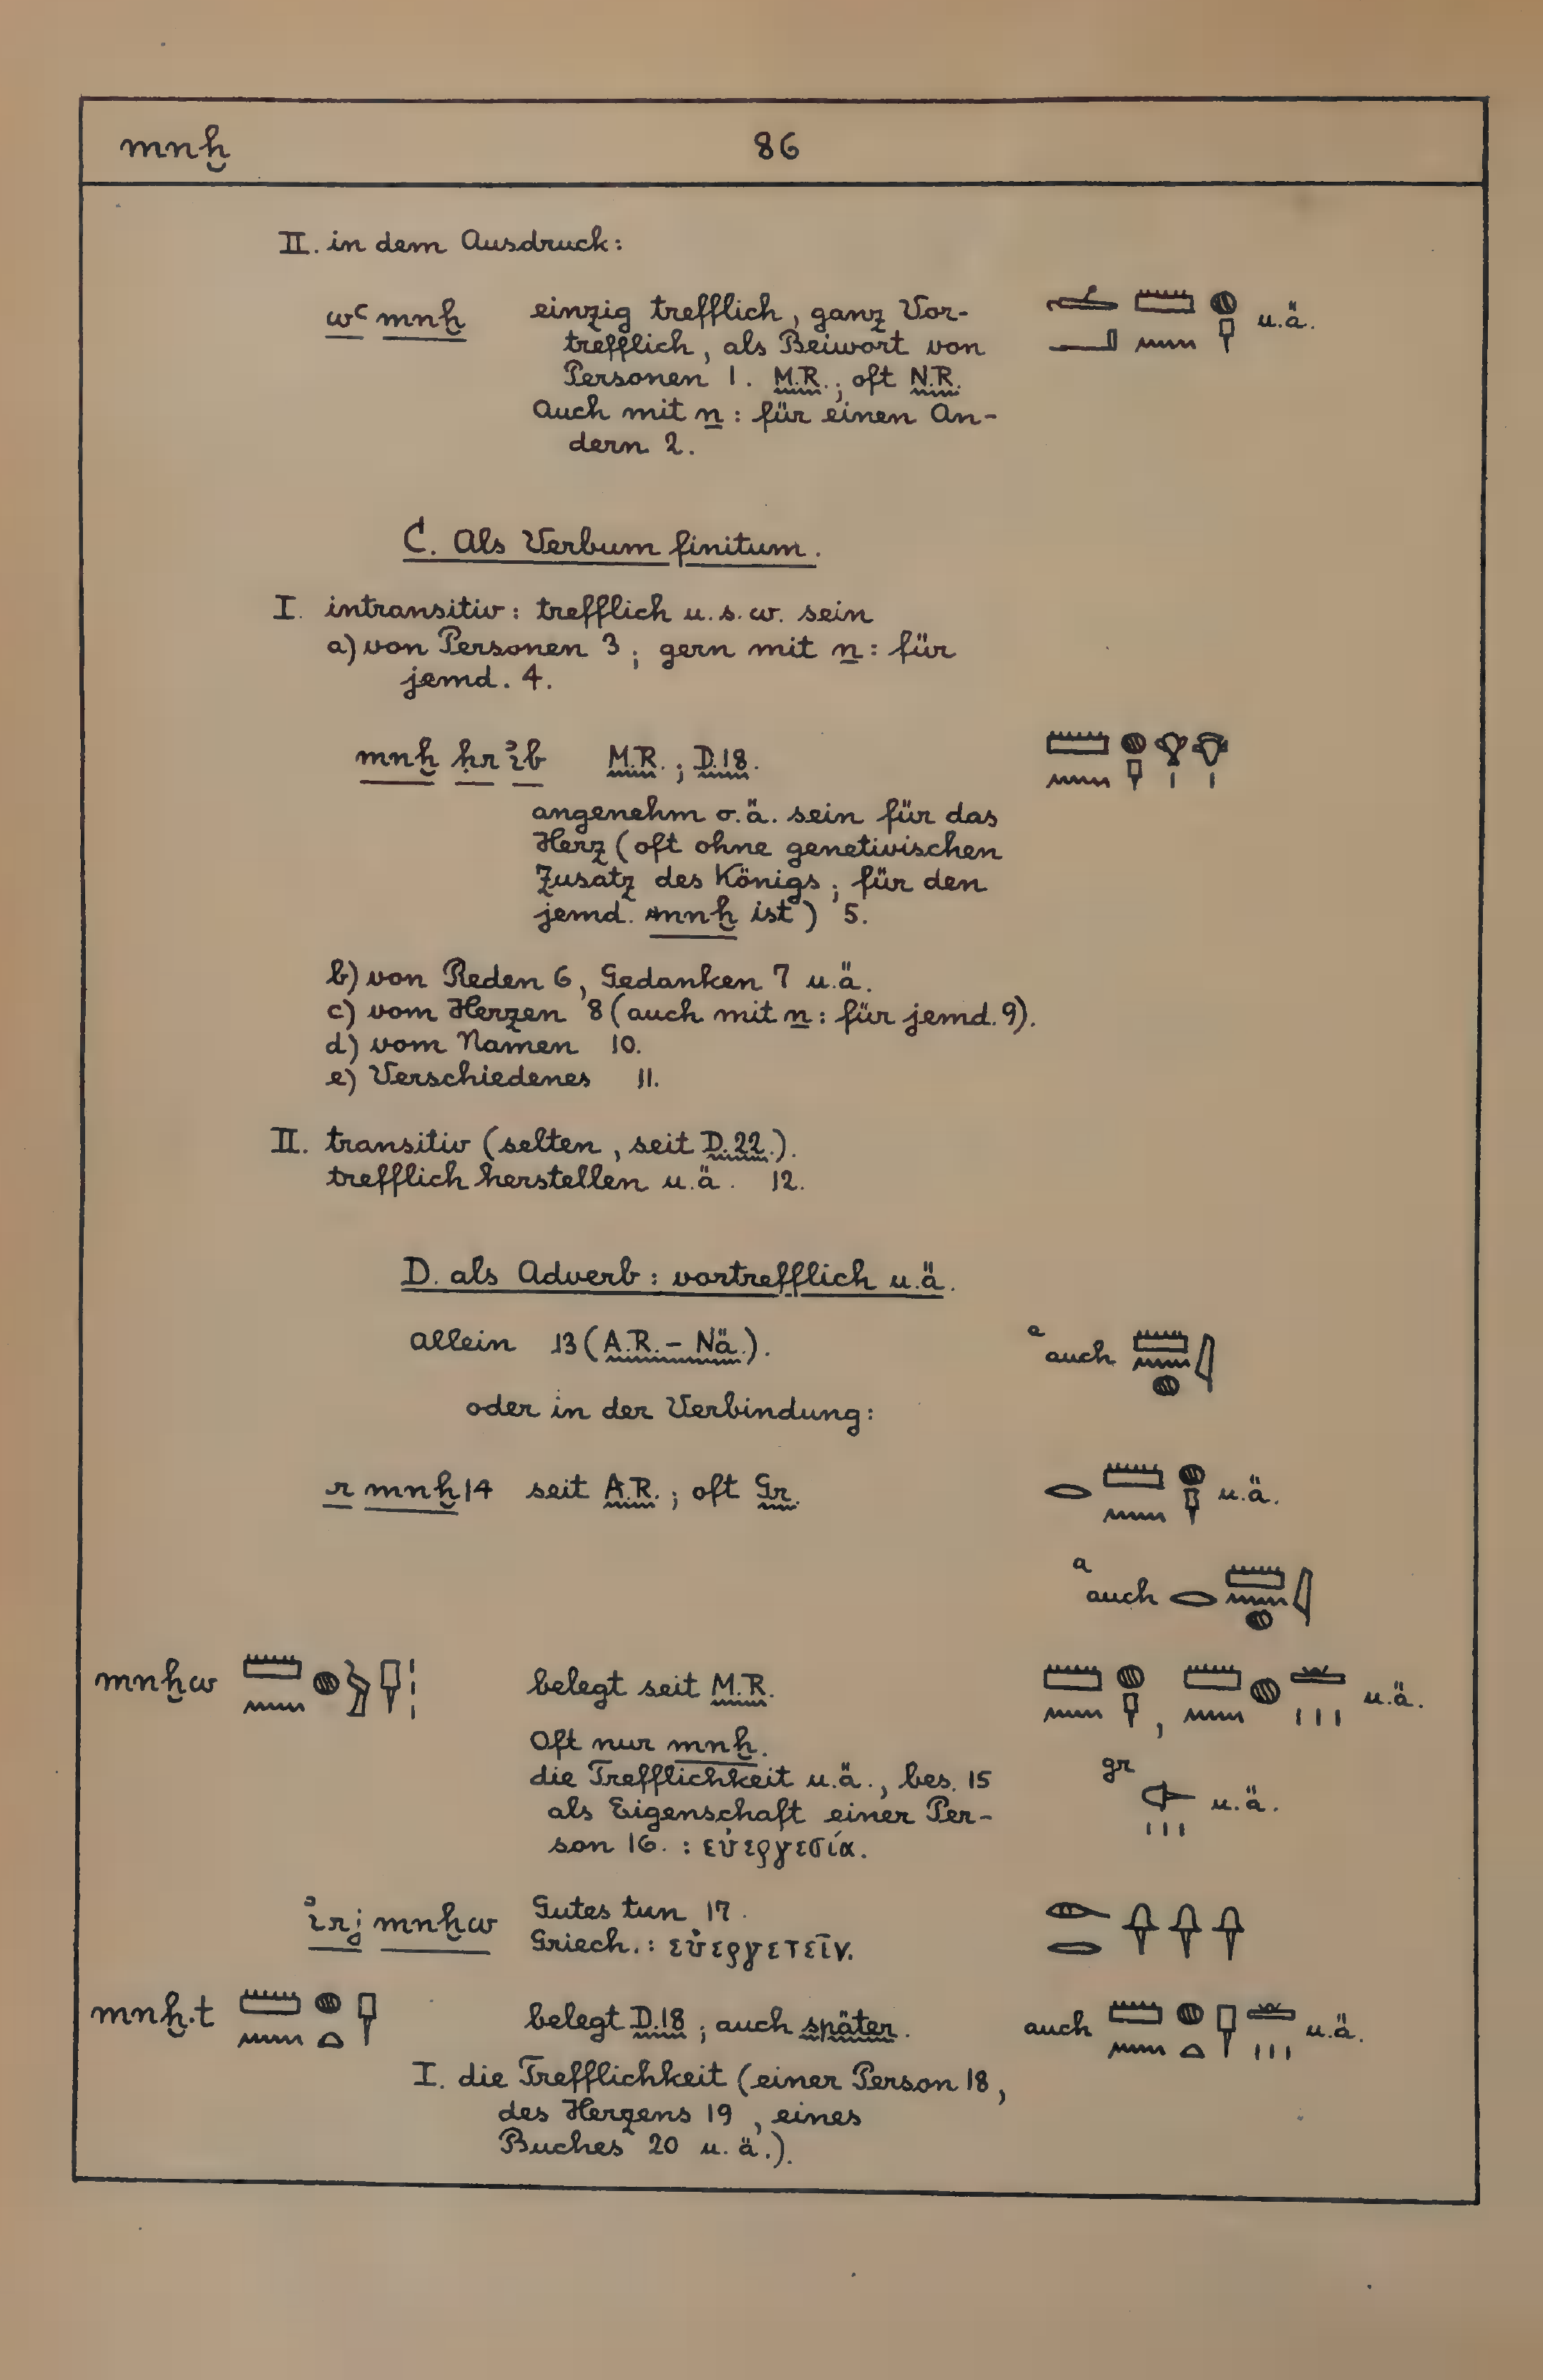 mnḫ 86
II. in dem Ausdruck:
wꜥ mnḫ einzig trefflich, ganz Vor- 𓌡𓏠𓐍 u.ä.
trefflich, als Beiwort von 𓂝𓈖𓍋
Personen 1. M.R.; oft N.R.
Auch mit n: für einen An-
dern 2.
C. Als Verbum finitum.
I. intransitiv: trefflich u.s.w. sein
a) von Personen 3; gern mit n: für
jemd. 4.
mnḫ ḥr ỉb M.R.; D.18. 𓏠𓈖𓐍𓍋𓁷𓏤𓄣𓏤
angenehm o.ä. sein für das
Herz (oft ohne genetivischen
Zusatz des Königs, für den
jemd. mnḫ ist) 5.
b) von Reden 6, Gedanken 7 u.ä.
c) vom Herzen 8 (auch mit n: für jemd. 9).
d) vom Namen 10.
e) Verschiedenes 11.
II. transitiv (selten, seit D.22.).
trefflich herstellen u.ä. 12.
D. als Adverb: vortrefflich u.ä.
allein 13 (A.R.-Nä.). a auch 𓏠𓈖𓐍
oder in der Verbindung:
r mnḫ 14 seit A.R.; oft Gr. 𓂋𓏠𓈖𓐍𓍋 u.ä.
a auch 𓂋𓏠𓈖𓐍
mnḫw 𓏠𓈖𓐍𓅱𓍋𓏥 belegt seit M.R. 𓏠𓈖𓐍𓍋, 𓏠𓈖𓐍𓏜𓏥 u.ä.
Oft nur mnḫ.
die Trefflichkeit u.ä., bes. 15 gr u.ä.
als Eigenschaft einer Per-
son 16. : εὐεργεσία.
ỉrj mnḫw Gutes tun 17. 𓁹𓂋𓍋𓍋𓍋
Griech.: εὐεργετεῖν.
mnḫ.t 𓏠𓈖𓐍𓏏𓍋 belegt D.18; auch später. auch 𓏠𓈖𓐍𓏏𓍋𓏜𓏥 u.ä.
I. die Trefflichkeit (einer Person 18,
des Herzens 19, eines
Buches 20 u.ä.).